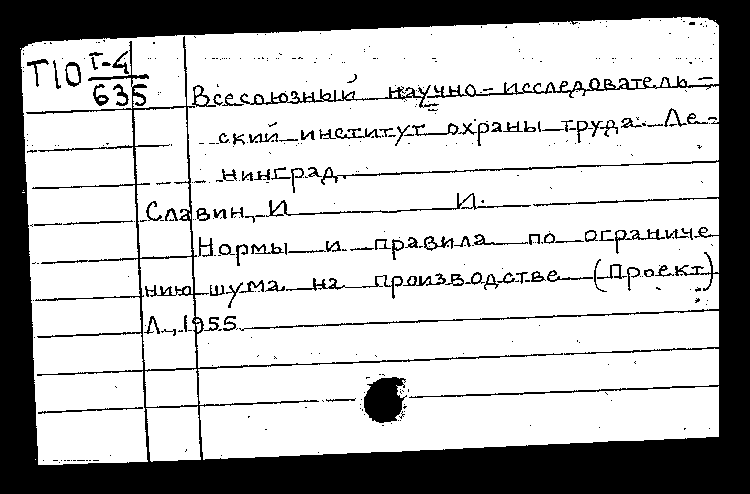 Т10 Г-4
635
Всесоюзный научно-исследователь-
ский институт охраны труда. Ле-
нинград.
Славин, И И.
Нормы и правила по ограниче
нию шума на производстве (Проект)
Л., 1955